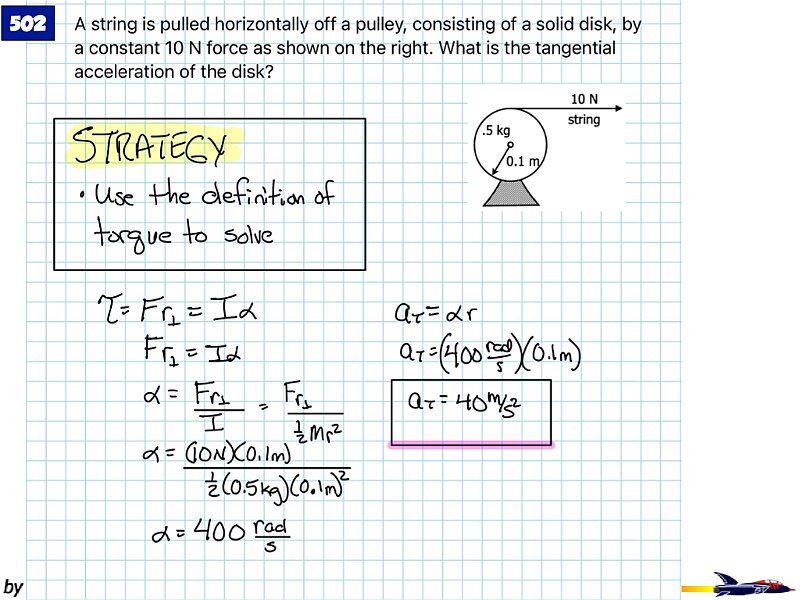 502
A string is pulled horizontally off a pulley, consisting of a solid disk, by
a constant 10 N force as shown on the right. What is the tangential
acceleration of the disk?
10 N
string
.5 kg
0.1 m
STRATEGY
• Use the definition of
torque to solve
τ = Fr⊥ = Iα
Fr⊥ = Iα
α = Fr⊥/I = Fr⊥/½Mr²
α = (10N)(0.1m)/½(0.5kg)(0.1m)²
α = 400 rad/s
aτ = αr
aτ = (400 rad/s)(0.1m)
aτ = 40 m/s²
by